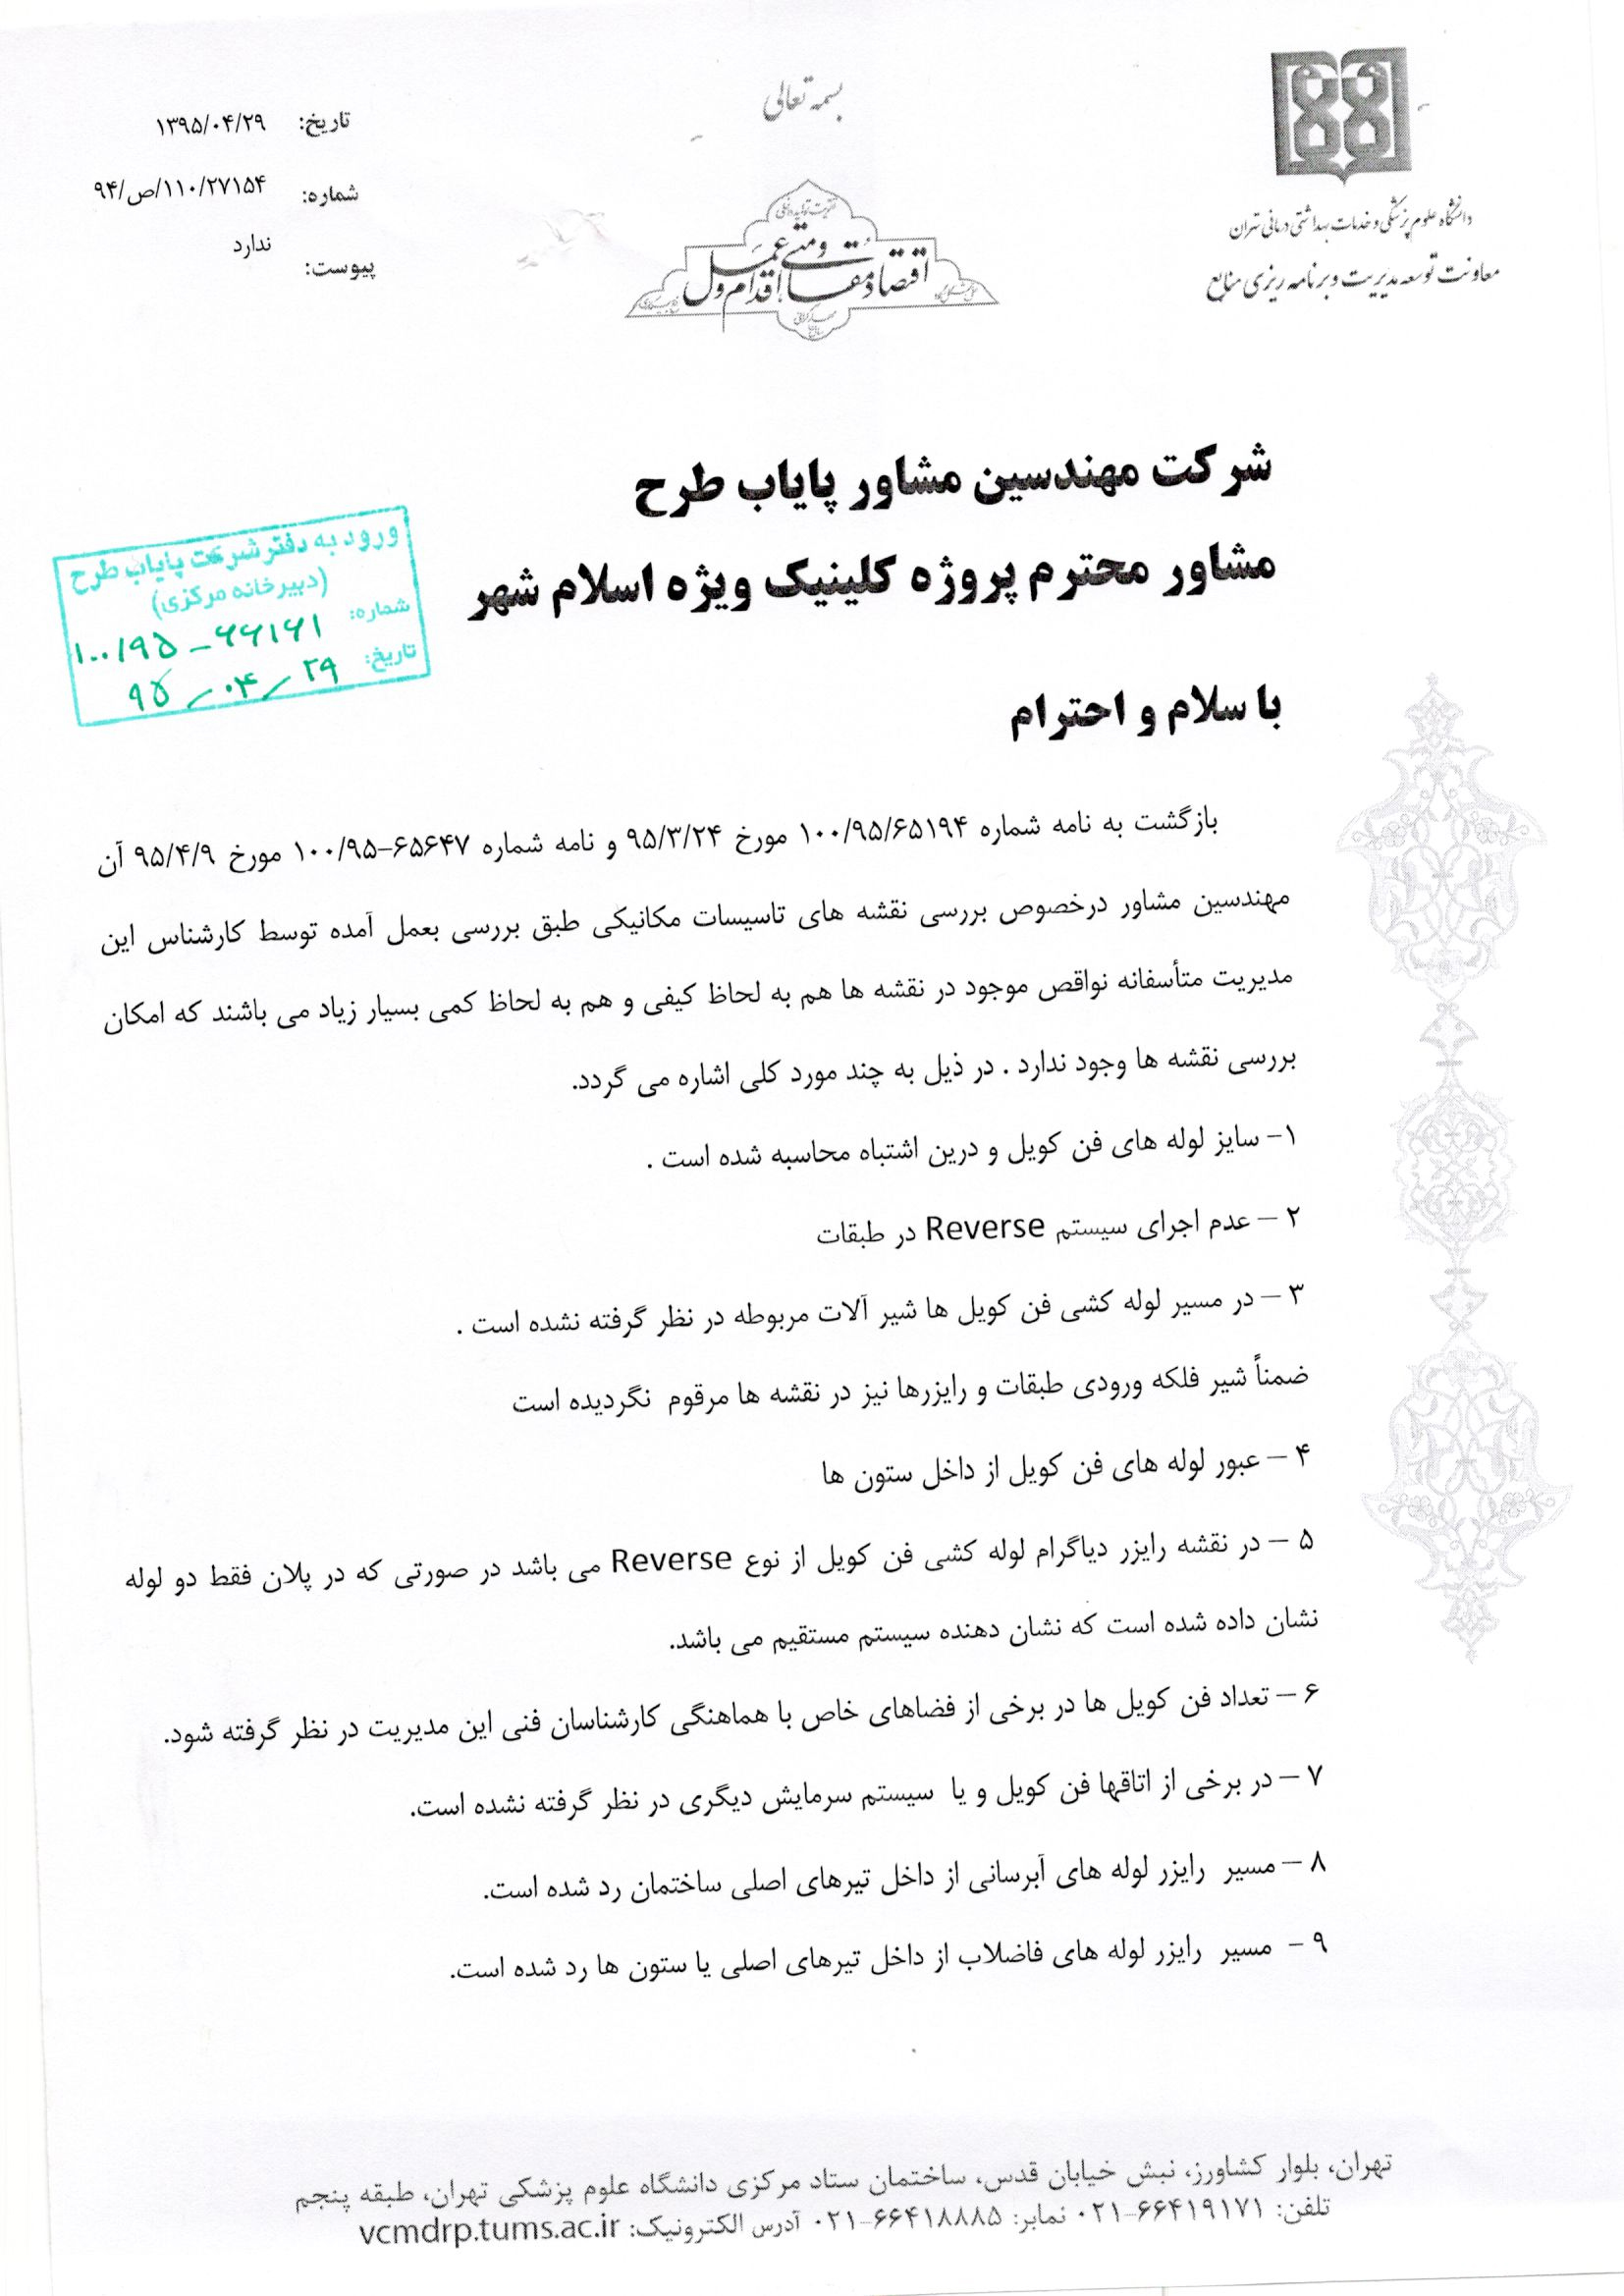 بسمه تعالی
دانشگاه علوم پزشکی و خدمات بهداشتی درمانی تهران
معاونت توسعه مدیریت و برنامه ریزی منابع
تاریخ: ۱۳۹۵/۰۴/۲۹
شماره: ۹۴/ص/۱۱۰/۲۷۱۵۴
پیوست: ندارد
اقتصاد مقاومتی اقدام و عمل
شرکت مهندسین مشاور پایاب طرح
مشاور محترم پروژه کلینیک ویژه اسلام شهر
ورود به دفتر شرکت پایاب طرح
(دبیرخانه مرکزی)
شماره: ۱۰۰/۹۵-۶۶۱۶۱
تاریخ: ۹۵/۰۴/۲۹
با سلام و احترام
بازگشت به نامه شماره ۱۰۰/۹۵/۶۵۱۹۴ مورخ ۹۵/۳/۲۴ و نامه شماره ۶۵۶۴۷-۱۰۰/۹۵ مورخ ۹۵/۴/۹ آن
مهندسین مشاور درخصوص بررسی نقشه های تاسیسات مکانیکی طبق بررسی بعمل آمده توسط کارشناس این
مدیریت متأسفانه نواقص موجود در نقشه ها هم به لحاظ کیفی و هم به لحاظ کمی بسیار زیاد می باشند که امکان
بررسی نقشه ها وجود ندارد . در ذیل به چند مورد کلی اشاره می گردد.
۱- سایز لوله های فن کویل و درین اشتباه محاسبه شده است .
۲ – عدم اجرای سیستم Reverse در طبقات
۳ – در مسیر لوله کشی فن کویل ها شیر آلات مربوطه در نظر گرفته نشده است .
ضمناً شیر فلکه ورودی طبقات و رایزرها نیز در نقشه ها مرقوم نگردیده است
۴ – عبور لوله های فن کویل از داخل ستون ها
۵ – در نقشه رایزر دیاگرام لوله کشی فن کویل از نوع Reverse می باشد در صورتی که در پلان فقط دو لوله
نشان داده شده است که نشان دهنده سیستم مستقیم می باشد.
۶ – تعداد فن کویل ها در برخی از فضاهای خاص با هماهنگی کارشناسان فنی این مدیریت در نظر گرفته شود.
۷ – در برخی از اتاقها فن کویل و یا سیستم سرمایش دیگری در نظر گرفته نشده است.
۸ – مسیر رایزر لوله های آبرسانی از داخل تیرهای اصلی ساختمان رد شده است.
۹ – مسیر رایزر لوله های فاضلاب از داخل تیرهای اصلی یا ستون ها رد شده است.
تهران، بلوار کشاورز، نبش خیابان قدس، ساختمان ستاد مرکزی دانشگاه علوم پزشکی تهران، طبقه پنجم
تلفن: ۶۶۴۱۹۱۷۱-۰۲۱ نمابر: ۶۶۴۱۸۸۸۵-۰۲۱ آدرس الکترونیک: vcmdrp.tums.ac.ir